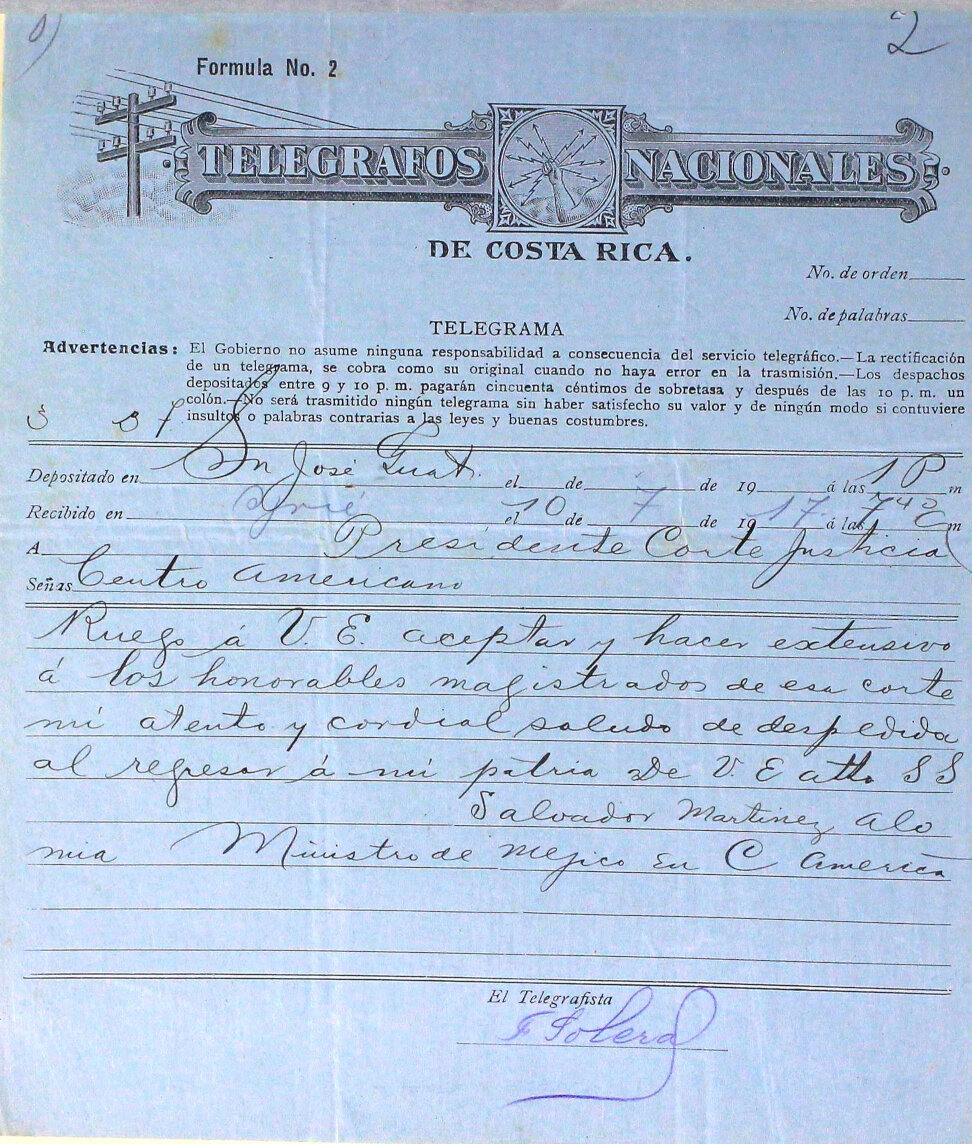 2
Formula No. 2
TELEGRAFOS NACIONALES
DE COSTA RICA.
No. de orden
No. de palabras
TELEGRAMA
Advertencias: El Gobierno no asume ninguna responsabilidad a consecuencia del servicio telegráfico.—La rectificación
de un telegrama, se cobra como su original cuando no haya error en la trasmisión.—Los despachos
depositados entre 9 y 10 p. m. pagarán cincuenta céntimos de sobretasa y después de las 10 p. m. un
colón.—No será trasmitido ningún telegrama sin haber satisfecho su valor y de ningún modo si contuviere
insultos o palabras contrarias a las leyes y buenas costumbres.
Depositado en Sn José Guat. el de de 19 á las 1 P m
Recibido en el 10 de 7 de 19 17 á las 7 42 m
A Presidente Corte Justicia
Señas Centro Americano
Ruego á V. E. aceptar y hacer extensivo
á los honorables magistrados de esa corte
mi atento y cordial saludo de despedida
al regresar á mi patria De V. E atto S S
Salvador Martinez Alo
mia Ministro de Mejico en C America
El Telegrafista
F Solera